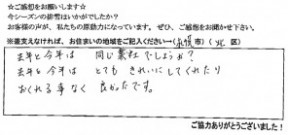 ☆ご感想をお願いします☆
今シーズンの排雪はいかがでしたか？
お客様の声が、私たちの原動力になっています。ぜひ、ご感想をお聞かせ下さい。
※差支えなければ、お住まいの地域をご記入ください→（札幌市）（北区）
去年と今年は 同じ業社でしょうか？
去年と今年は とてもきれいにしてくれたり
おくれる事なく 良かったです。
ご協力ありがとうございました！